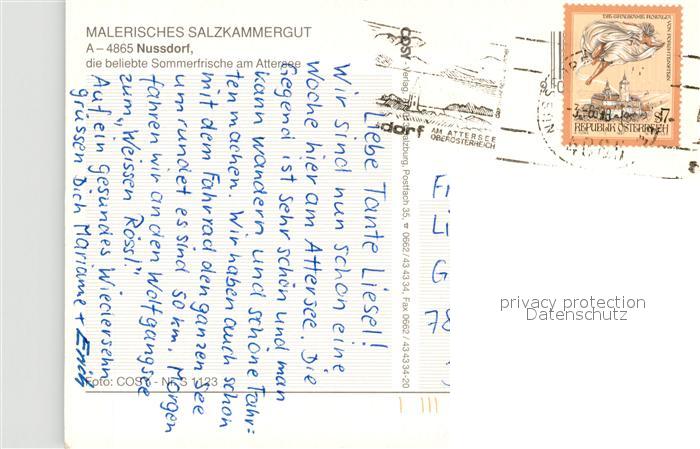 MALERISCHES SALZKAMMERGUT
A – 4865 Nussdorf,
die beliebte Sommerfrische am Attersee
Liebe Tante Liesel!
Wir sind nun schon eine
Woche hier am Attersee. Die
Gegend ist sehr schön und man
kann wandern und schöne Fahr=
ten machen. Wir haben auch schon
mit dem Fahrrad den ganzen See
umrundet es sind 50 km. Morgen
fahren wir an den Wolfgangsee
zum „Weissen Rössl"
Auf ein gesundes Wiedersehn
grüssen Dich Marianne + Erich
Foto: COSY - Nr. S 1123
COSY - Verlag, Salzburg, Postfach 35, ☎ 0662/434334, Fax 0662 / 434334-20
dorf AM ATTERSEE
OBERÖSTERREICH
S7
REPUBLIK ÖSTERREICH
Li
G
78
privacy protection
Datenschutz